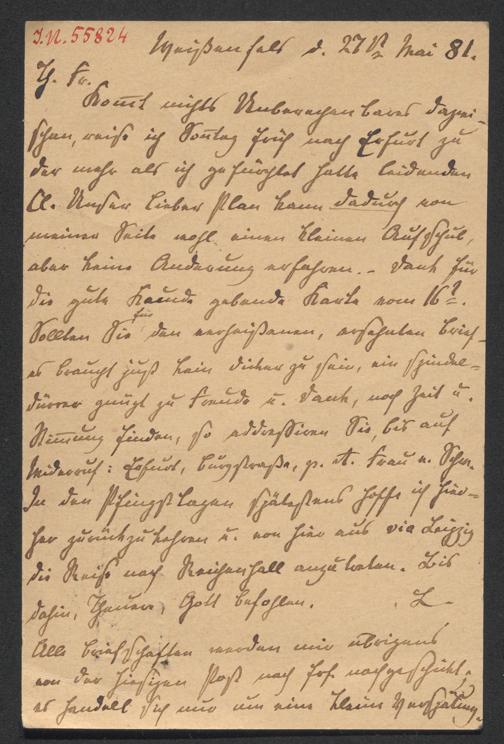 I.N. 55824
Weißenfels d. 27t Mai 81.
Th. Fr.
Kom̅t nichts Unberechenbares dazwi-
schen, reise ich Sonntag früh nach Erfurt zu
der mehr als ich gefürchtet hatte leidenden
Cl. Unser lieber Plan kann dadurch von
meiner Seite wohl einen kleinen Aufschub,
aber keine Änderung erfahren. – Dank für
die gute Kunde gebende Karte vom 16t.
Sollten Sie für den verheißenen, ersehnten Brief-
es braucht just kein dicker zu sein, ein spindel-
dürrer genügt zu Freude u. Dank, noch Zeit u.
Stimmung finden, so addressiren Sie, bis auf
Widerruf: Erfurt, Burgstraße, p. A. Frau v. Schw.
In den Pfingsttagen spätestens hoffe ich hier-
her zurückzukehren u. von hier aus via Leipzig
die Reise nach Reichenhall anzutreten. Bis
dahin, Theuere, Gott befohlen. L.
Alle Briefschaften werden mir übrigens
von der hiesigen Post nach Erf. nachgeschickt,
es handelt sich nur um eine kleine Verspätung.